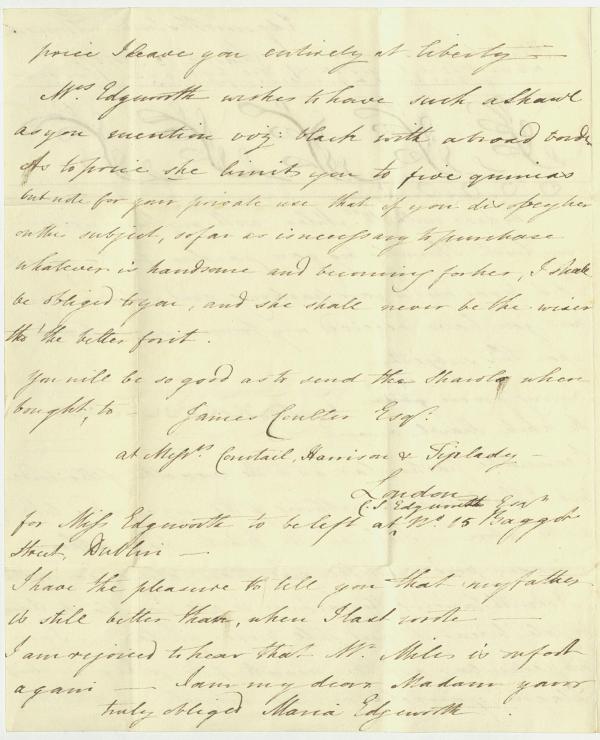 price I leave you entirely at liberty —
Mrs Edgworth wishes to have such a Shawl
as you mention viz: black with a broad border
As to price she limits you to five guineas
but note for your private use that if you disobey her
on this subject, so far as is necessary to purchase
whatever is handsome and becoming for her, I shall
be obliged to you, and she shall never be the wiser
tho' the better for it.
You will be so good as to send the Shawls when
bought, to — James Coulter Esqr.
at Messrs. Harrison & Tiplady —
London
C S Edgworth Esqr
for Miss Edgworth to be left at No 15 Baggot
Street, Dublin —
I have the pleasure to tell you that my father
is still better than, when I last wrote —
I am rejoiced to hear that Mr. Miles is
again — I am my dear Madam your
truly obliged Maria Edgeworth.